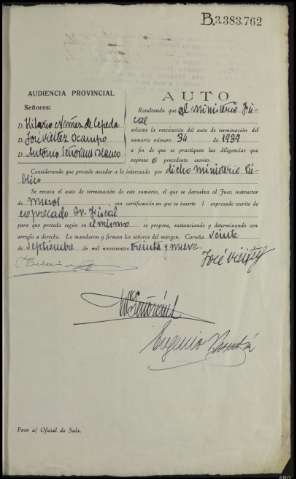 B.3.383.762
AUDIENCIA PROVINCIAL
Señores:
D. Hilario Núñez de Cepeda
D. José Vélez Ocampo
D. Antonio Señoráns Blanco
AUTO
Resultando que el Ministerio Fis-
cal
solicita la revocación del auto de terminación del
sumario número 34 de 1939
a fin de que se practiquen las diligencias que
expresa el precedente escrito.
Considerando que procede acceder a lo interesado por dicho Ministerio Pú-
blico
Se revoca el auto de terminación de este sumario, el que se devuelva al Juez instructor
de con certificación en que se inserte el expresado escrito de
expresado Sr. Fiscal
para que proceda según en el mismo se propone, sustanciando y determinando con
arreglo a derecho. Lo mandaron y firman los señores del margen. Coruña veinte
de Septiembre de mil novecientos treinta y nueve
José Vélez
Eugenio
Para el Oficial de Sala.